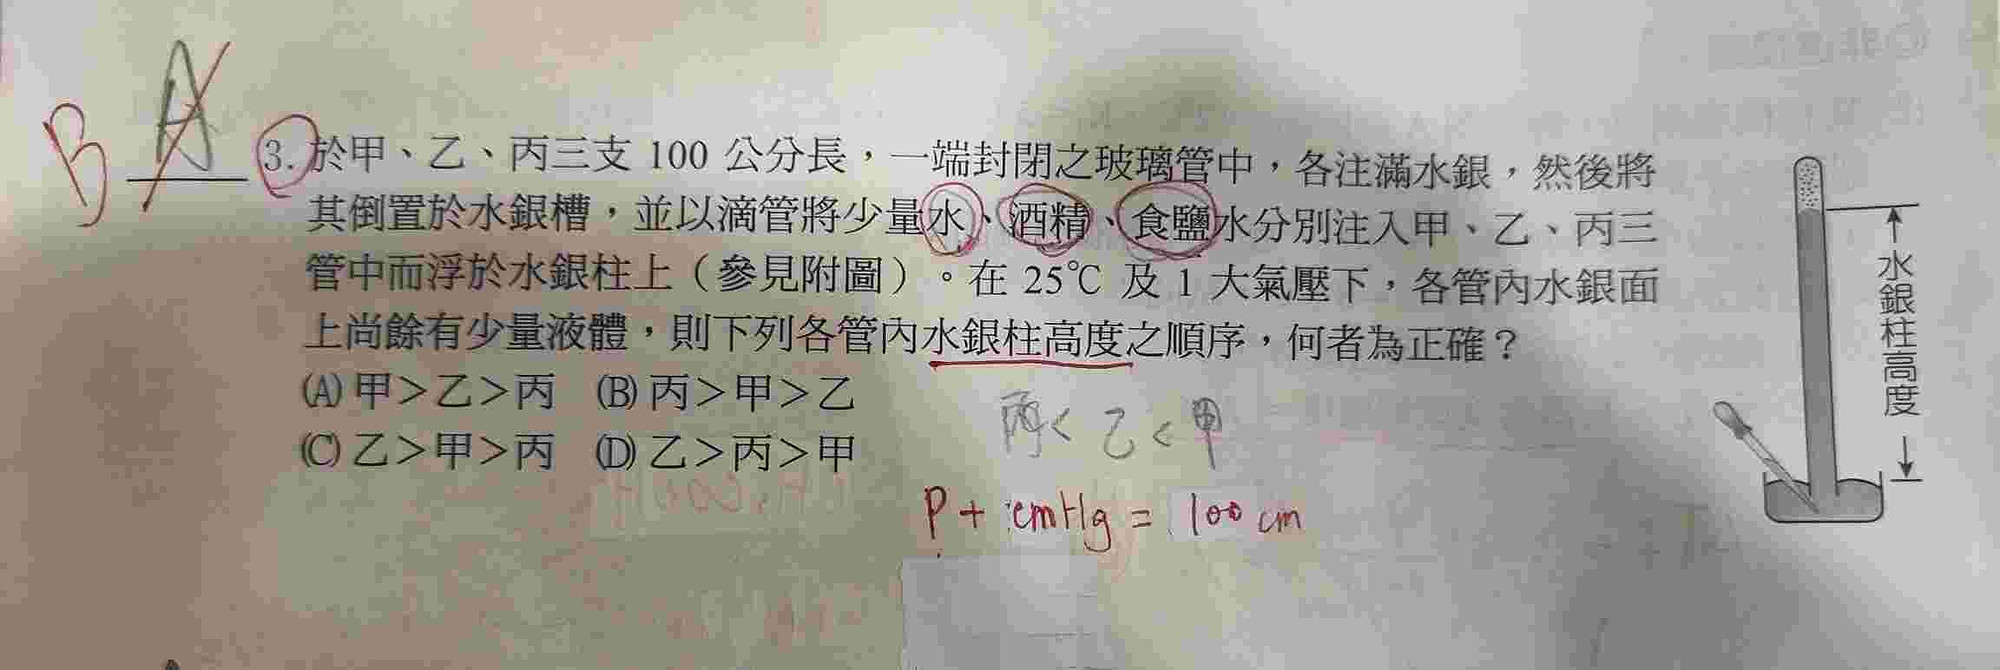 B A
3. 於甲、乙、丙三支 100 公分長，一端封閉之玻璃管中，各注滿水銀，然後將
其倒置於水銀槽，並以滴管將少量水、酒精、食鹽水分別注入甲、乙、丙三
管中而浮於水銀柱上（參見附圖）。在 25℃ 及 1 大氣壓下，各管內水銀面
上尚餘有少量液體，則下列各管內水銀柱高度之順序，何者為正確？
(A) 甲＞乙＞丙 (B) 丙＞甲＞乙
(C) 乙＞甲＞丙 (D) 乙＞丙＞甲
丙＜乙＜甲
P + cmHg = 100 cm
水銀柱高度